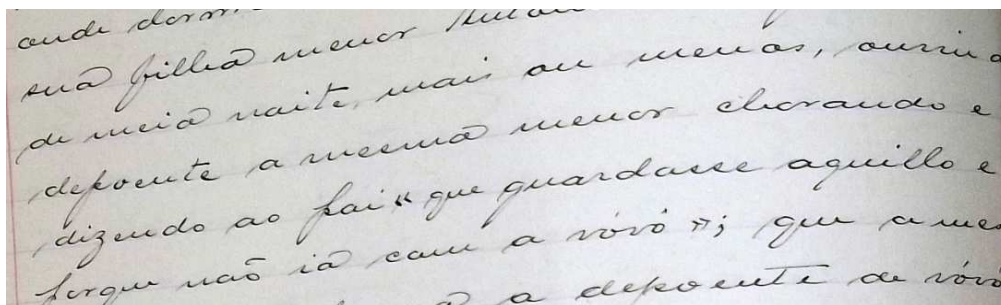 onde
sua filha menor
de meia noite, mais ou menos, ouviu a
depoente a mesma menor chorando e
dizendo ao pai « que guardasse aquillo e
porque não ia com a vóvó »; que a mes
a depoente de vóvó